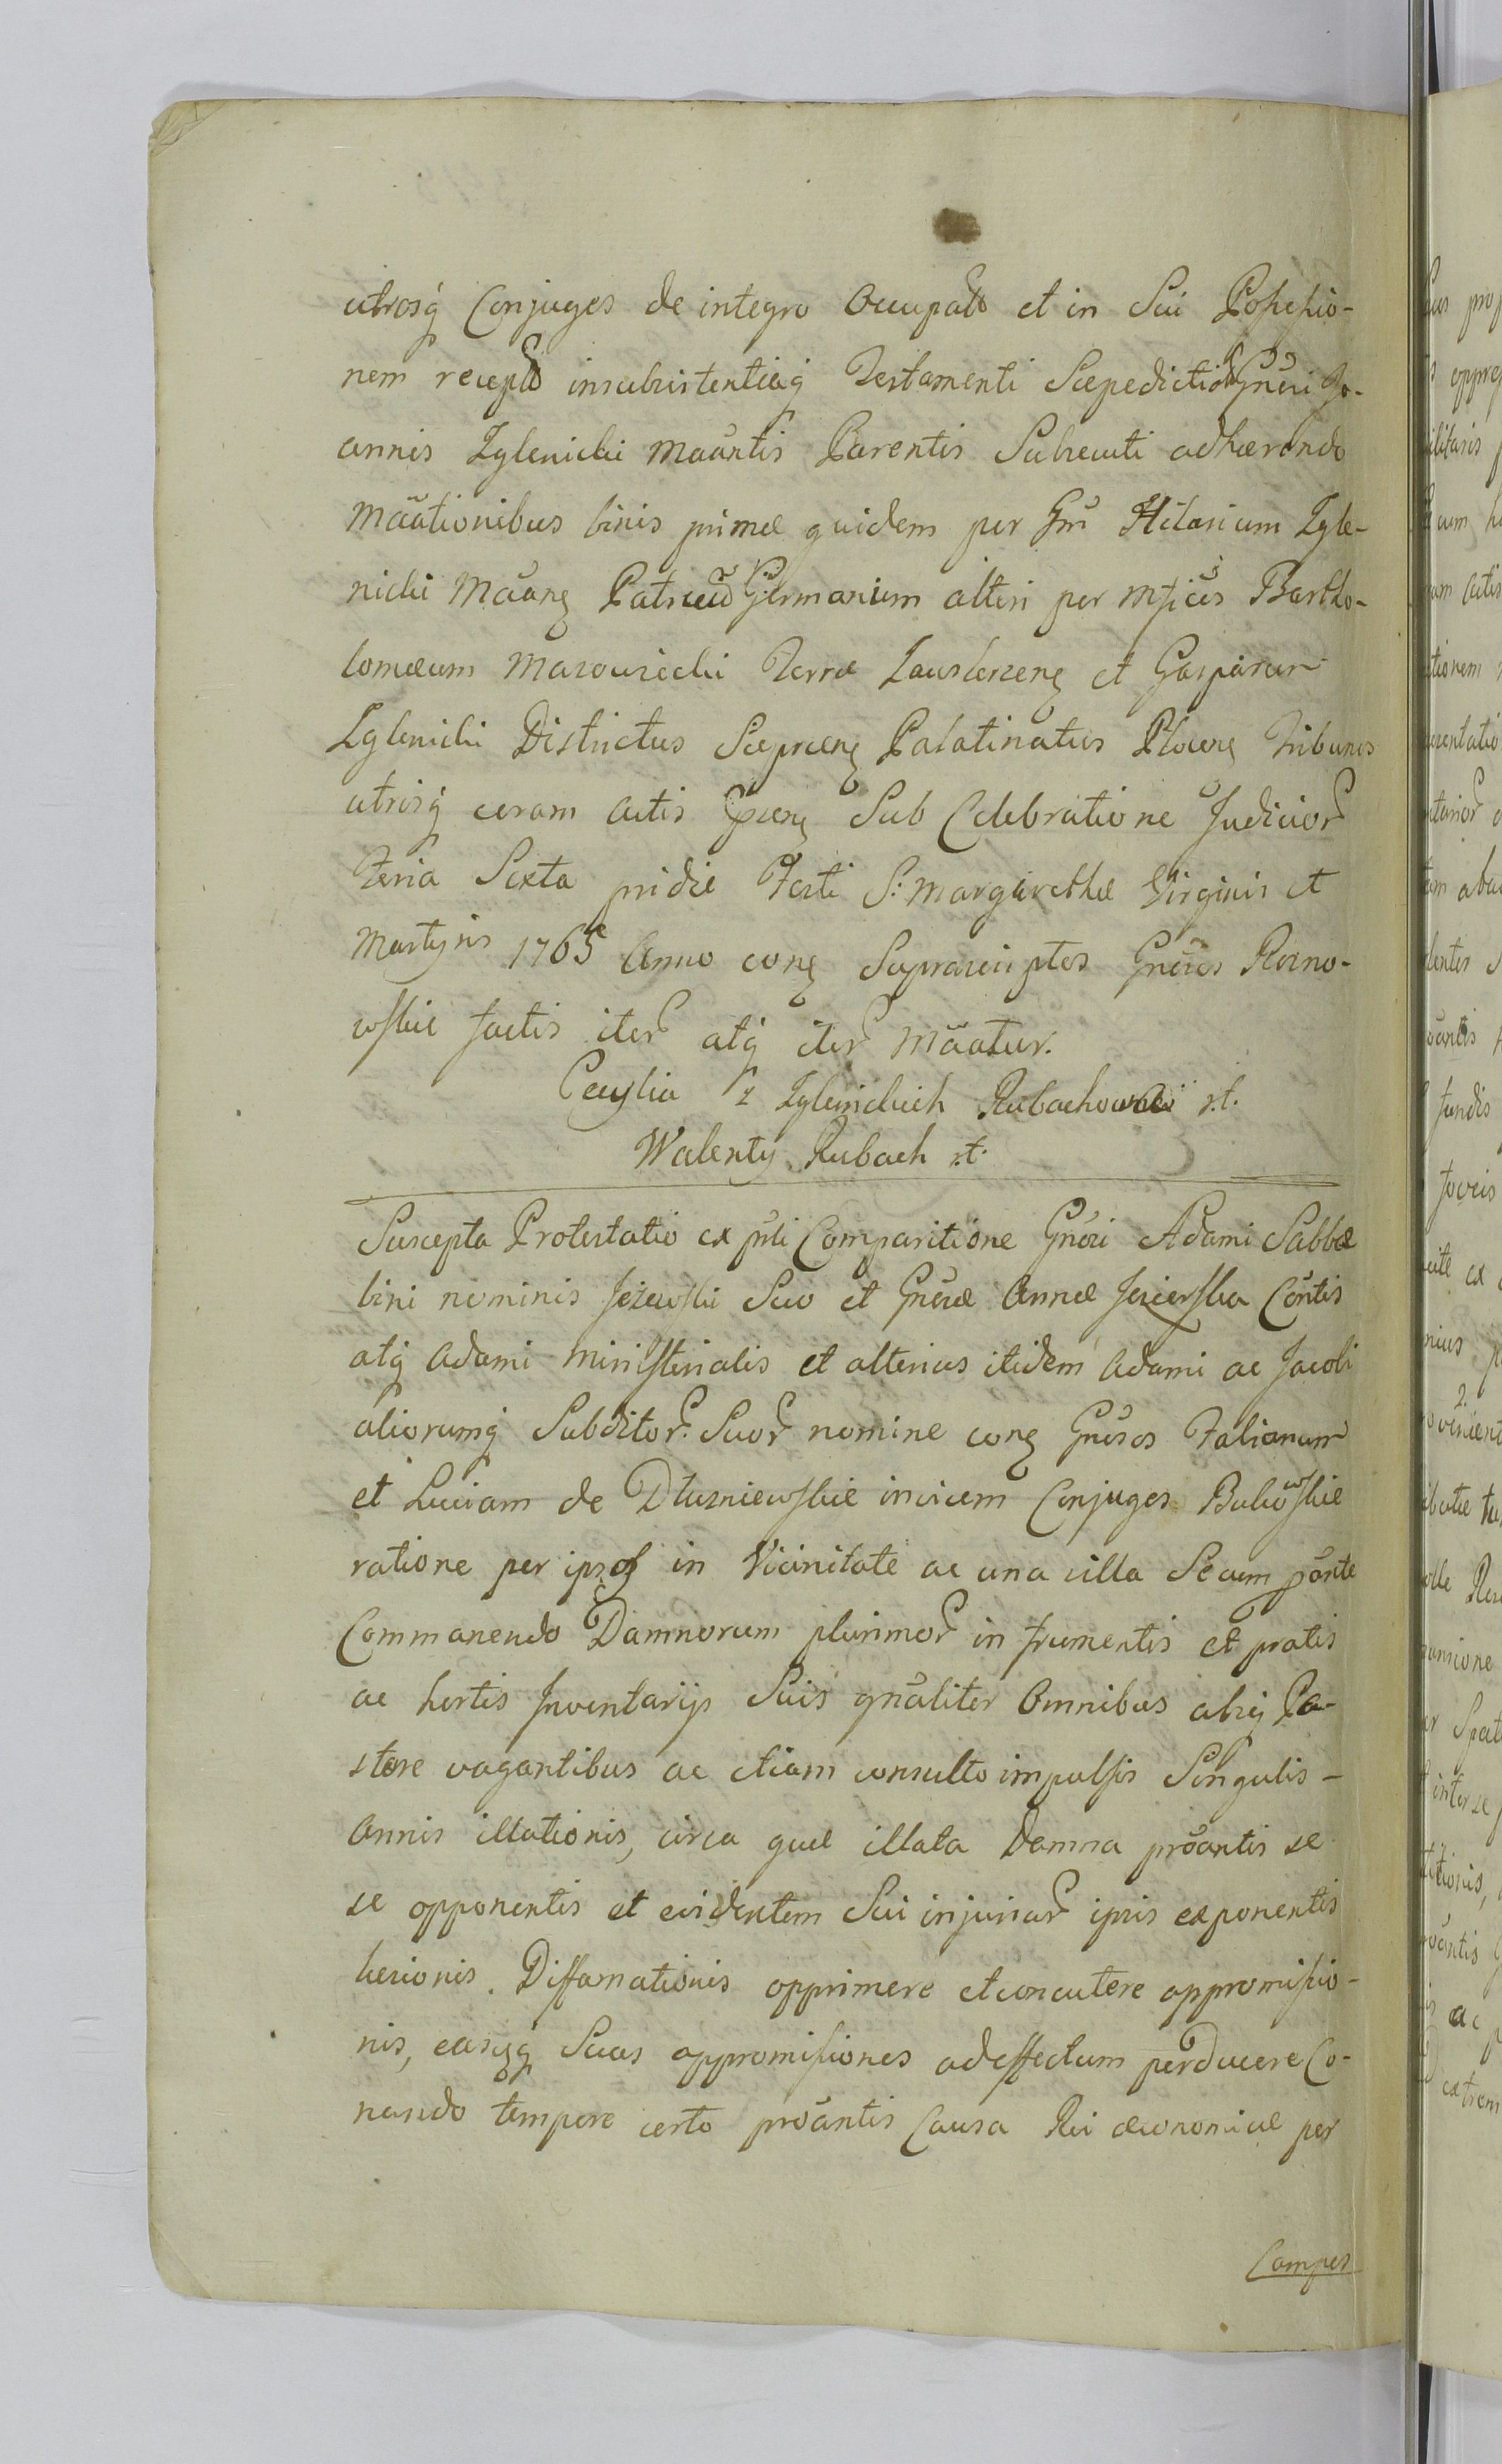 utrosq̃ Conjuges de integro occupatt et in Sui Possessio-
nem receptt insubsistentiaq̃ Testamenti Sæpedicti Gnõsi Jo-
annis Zglenicki maãntis Parentis Subsecuti adhærendo
mãationibus binis primæ quidem per Gm̃ Hilarium Zgle-
nicki Mãanę Germanum alteri per Mficũs Bartho-
lomæum Mazowiecki Terræ Zawskrzenę et Gasparum
Zglenicki Districtus Sieprcenę Palatinatus Plocenę Tribunos
utrisq̃ coram Actis Sub Celebratione Judicior
Feria Sexta pridie Festi S: Margarethæ Virginis et
Martyris 1765 Anno conę Suprascriptos Gnõsos Rosno-
wskie factis iter atq̃ iter mãatur.
Cecylia z Zglinickich Rubachowa s.t.
Walenty Rubach s.t.
Suscepta Protestatio ex pñti Comparitione Gnõsi Adami Sabbæ
bini nominis Jeżewski Suo et Gnõsæ Annæ Jezierska Cõntis
atq̃ Adami Ministerialis et alterius itidem Adami ac Jacobi
aliorumq̃ Subditor Suor nomine conę Gnõsos Fabianum
et Luciam de Dłuzniewskie invicem Conjuges Bukowskie
ratione per ipsos in Vicinitate ac una villa Secum põnte
Commanendo Damnorum plurimor in frumentis et pratis
ac hortis Inventarijs Suis gnãliter omnibus absq̃ Pa-
store vagantibus ac etiam consulto impulsis Singulis-
Annis illationis, circa quæ illata Damna prõantis se
se opponentis et evidentem Sui injuriar ipsis exponentis
læsionis. Diffamationis opprimere et concutere appromissio-
nis, easq̃ Suas appromissiones ad effectum perducere Co-
nando tempore certo prõantis Causa Rei æconomicæ per
Campes